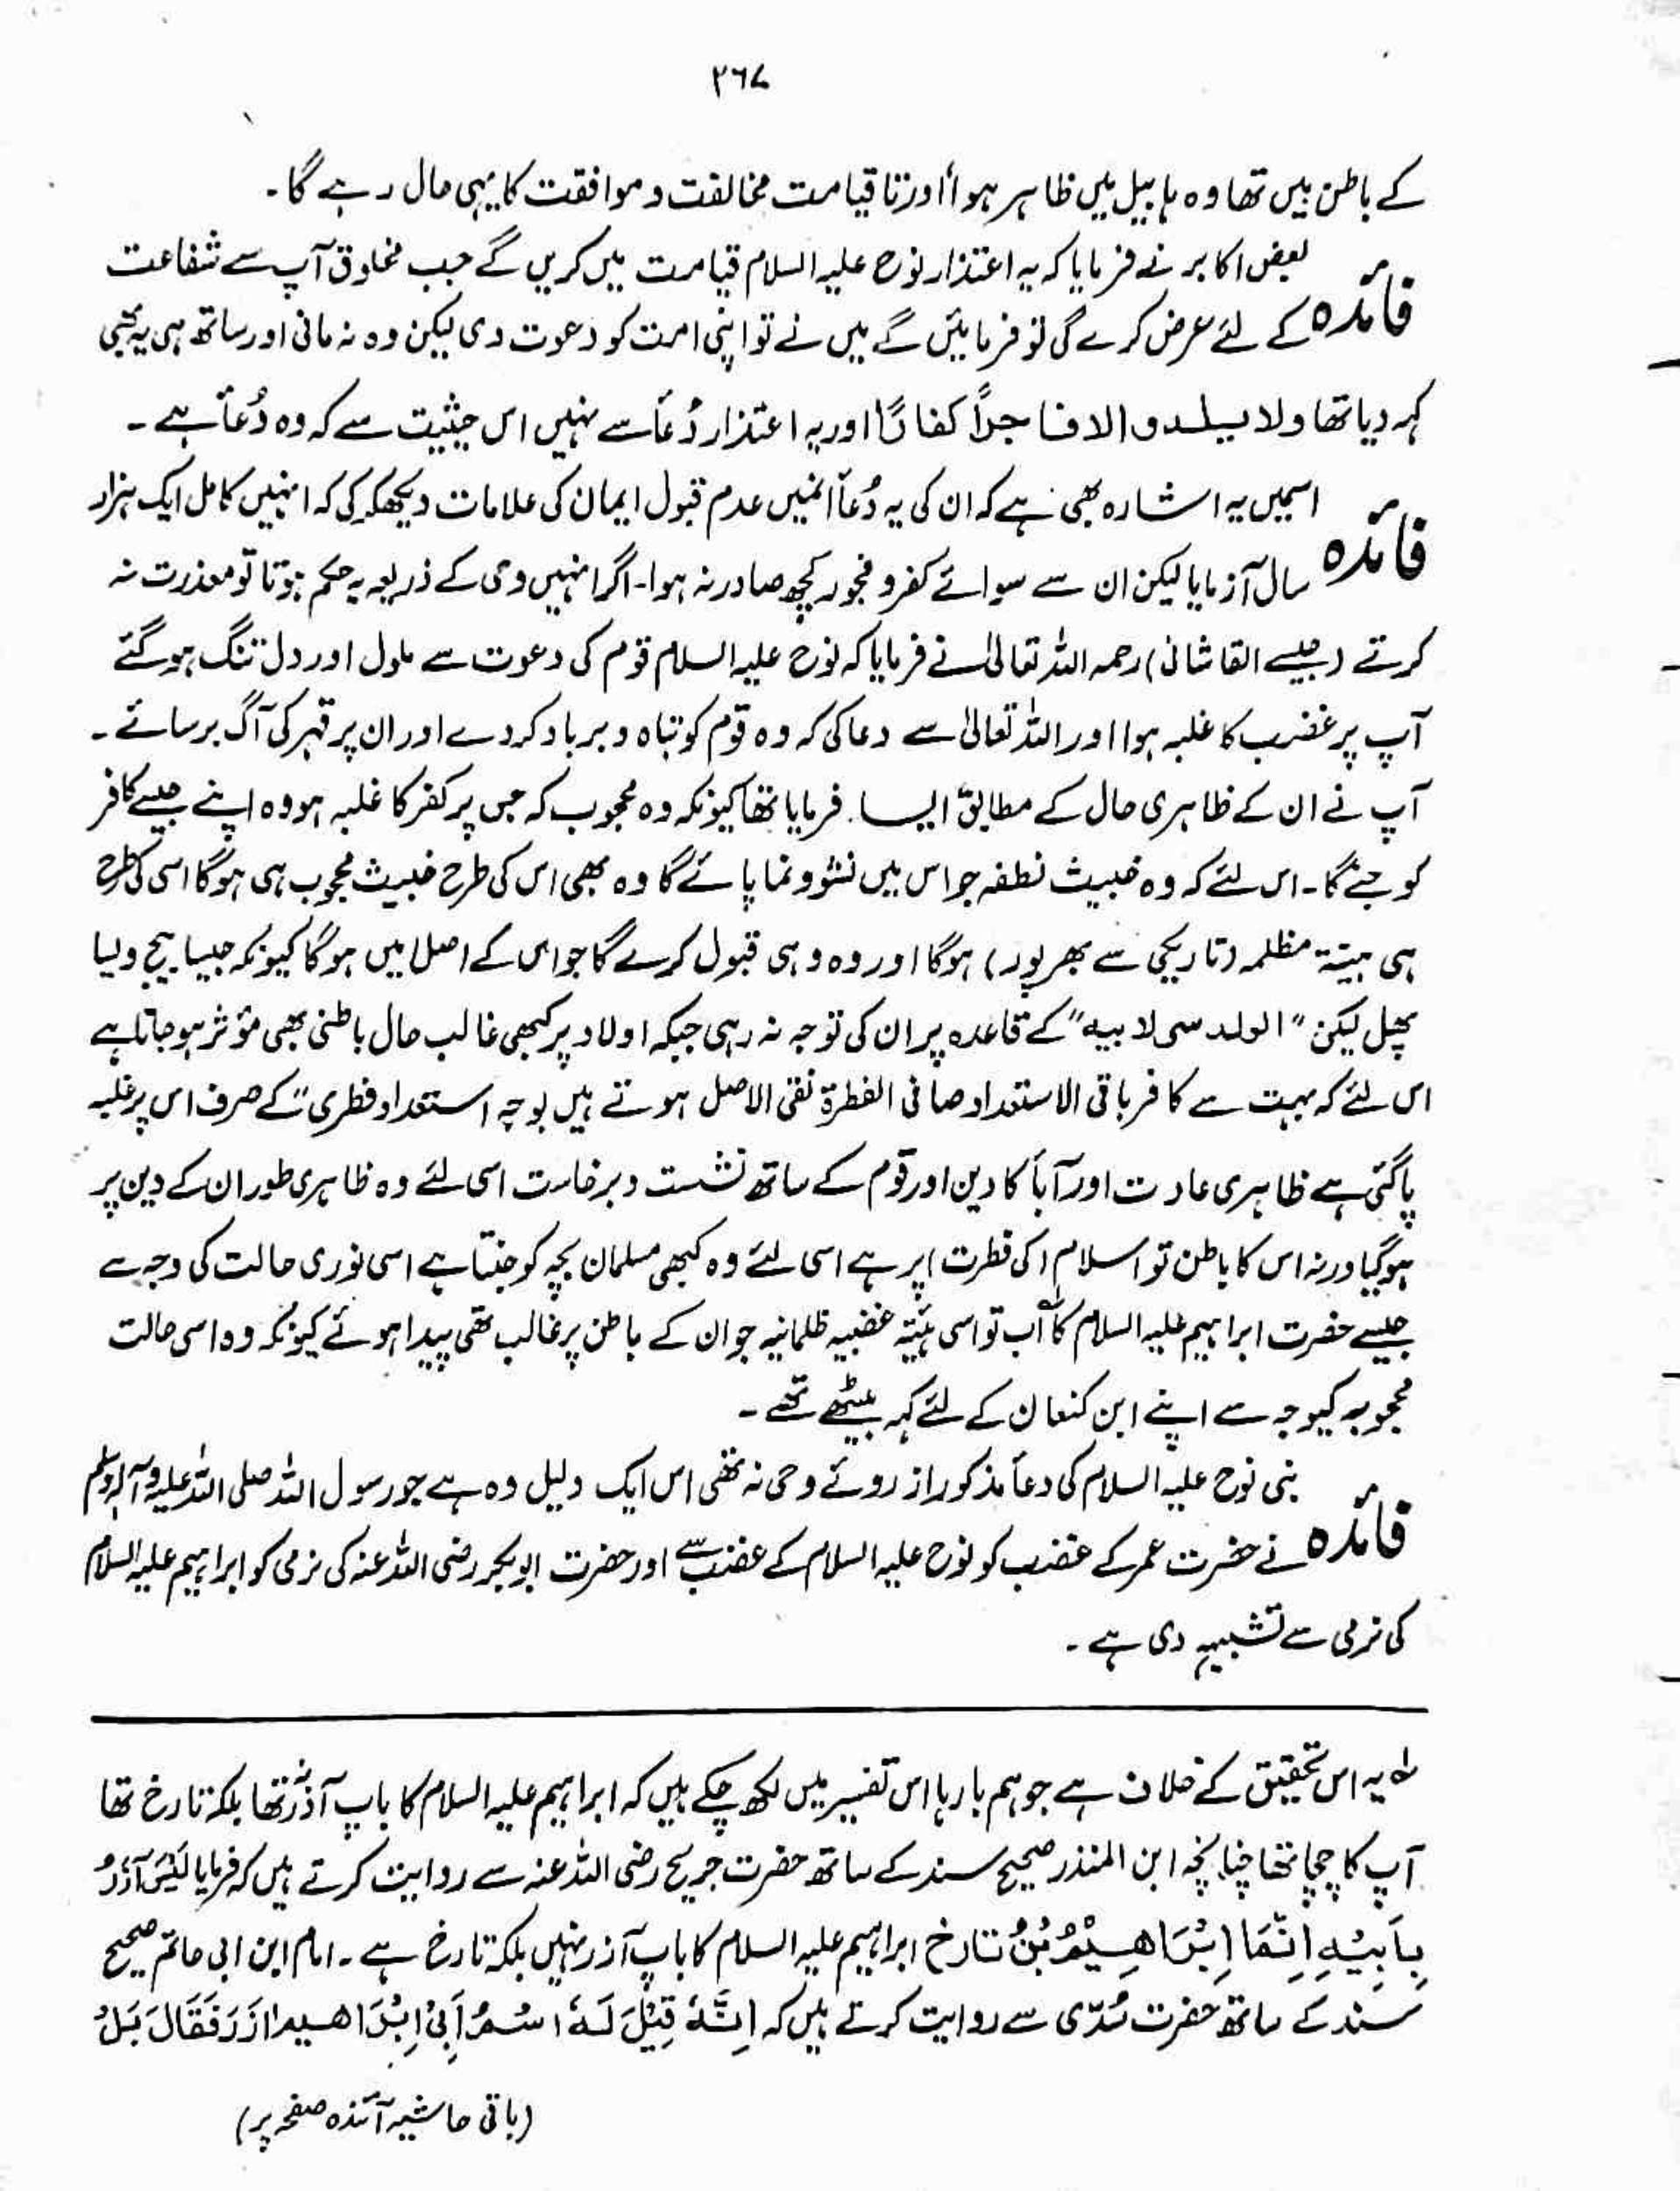 ٣٦٧
کے باطن میں تھا وہ ہابیل میں ظاہر ہوا اور تا قیامت مخالفت و موافقت کا یہی حال رہے گا۔
بعض اکابر نے فرمایا کہ یہ اعتذار نوح علیہ السلام قیامت میں کریں گے جب مخلوق آپ سے شفاعت
فائدہ کے لئے عرض کرے گی تو فرمائیں گے میں نے تو اپنی امت کو دعوت دی لیکن وہ نہ مانی اور ساتھ ہی یہ بھی
کہہ دیا تھا ولا یلدوا الا فاجراً کفارًا اور یہ اعتذار دُعأ سے نہیں اس حیثیت سے کہ وہ دُعأ ہے ۔
اسمیں یہ اشارہ بھی ہے کہ ان کی یہ دُعأ انہیں عدم قبول ایمان کی علامات دیکھکر کی کہ انہیں کامل ایک ہزار
فائدہ سال آزمایا لیکن ان سے سوائے کفر و فجور کچھ صادر نہ ہوا۔ اگر انہیں وحی کے ذریعہ یہ حکم ہوتا تو معذرت نہ
کرتے (جیسے القاشانی) رحمہ اللہ تعالیٰ نے فرمایا کہ نوح علیہ السلام قوم کی دعوت سے ملول اور دل تنگ ہو گئے
آپ پر غضب کا غلبہ ہوا اور اللہ تعالیٰ سے دعا کی کہ وہ قوم کو تباہ و برباد کر دے اور ان پر قہر کی آگ برسائے ۔
آپ نے ان کے ظاہری حال کے مطابق ایسا فرمایا تھا کیونکہ وہ محجوب کہ جس پر کفر کا غلبہ ہو وہ اپنے جیسے کافر
کو جنے گا۔ اس لئے کہ وہ خبیث نطفہ جو اس میں نشو و نما پائے گا وہ بھی اس کی طرح خبیث محجوب ہی ہوگا اسی کی طرح
ہی ہیئۃ مظلمہ (تاریکی سے بھرپور) ہوگا اور وہ وہی قبول کرے گا جو اس کے اصل میں ہوگا کیونکہ جیسا بیج ویسا
پھل لیکن "الولد سر لابیہ" کے قاعدہ پر ان کی توجہ نہ رہی جبکہ اولاد پر کبھی غالب حال باطنی بھی مؤثر ہو جاتا ہے
اس لئے کہ بہت سے کافر باقی الاستعداد صافی الفطرۃ نقی الاصل ہوتے ہیں بوجہ استعداد فطری کے صرف اس پر غلبہ
پا گئی ہے ظاہری عادت اور آبأ کا دین اور قوم کے ساتھ نشست و برخاست اسی لئے وہ ظاہری طور ان کے دین پر
ہوگیا ورنہ اس کا باطن تو اسلام (کی فطرت) پر ہے اسی لئے وہ کبھی مسلمان بچہ کو جنتا ہے اسی نوری حالت کی وجہ سے
جیسے حضرت ابراہیم علیہ السلام کا آب تو اسی ہیئۃ غضبیہ ظلمانیہ جو ان کے باطن پر غالب تھی پیدا ہوئے کیونکہ وہ اسی حالت
محجوبہ کیوجہ سے اپنے ابن کنعان کے لئے کہہ بیٹھے تھے ۔
نبی نوح علیہ السلام کی دعأ مذکور از روئے وحی نہ تھی اس ایک دلیل وہ ہے جو رسول اللہ صلی اللہ علیہ وآلہ وسلم
فائدہ نے حضرت عمر کے غضب کو نوح علیہ السلام کے غضب سے اور حضرت ابوبکر رضی اللہ عنہ کی نرمی کو ابراہیم علیہ السلام
کی نرمی سے تشبیہ دی ہے ۔
لہ یہ اس تحقیق کے خلاف ہے جو ہم بارہا اس تفسیر میں لکھ چکے ہیں کہ ابراہیم علیہ السلام کا باپ آذر نہ تھا بلکہ تارخ تھا
آپ کا چچا تھا چنانچہ ابن المنذر صحیح سند کے ساتھ حضرت جریج رضی اللہ عنہ سے روایت کرتے ہیں کہ فرمایا لَیْسَ آزَرُ
بِاَبِیْهِ اِنَّمَا اِبْرَاهِیْمُ بْنُ تارخ ابراہیم علیہ السلام کا باپ آذر نہیں بلکہ تارخ ہے ۔ امام ابن ابی حاتم صحیح
سند کے ساتھ حضرت سُدّی سے روایت کرتے ہیں کہ اِنَّهٗ قِیْلَ لَهٗ اسْمُ اَبِیْ اِبْرَاهیم اٰزَرَ فَقَالَ بَلْ
(باقی حاشیہ آئندہ صفحہ پر)